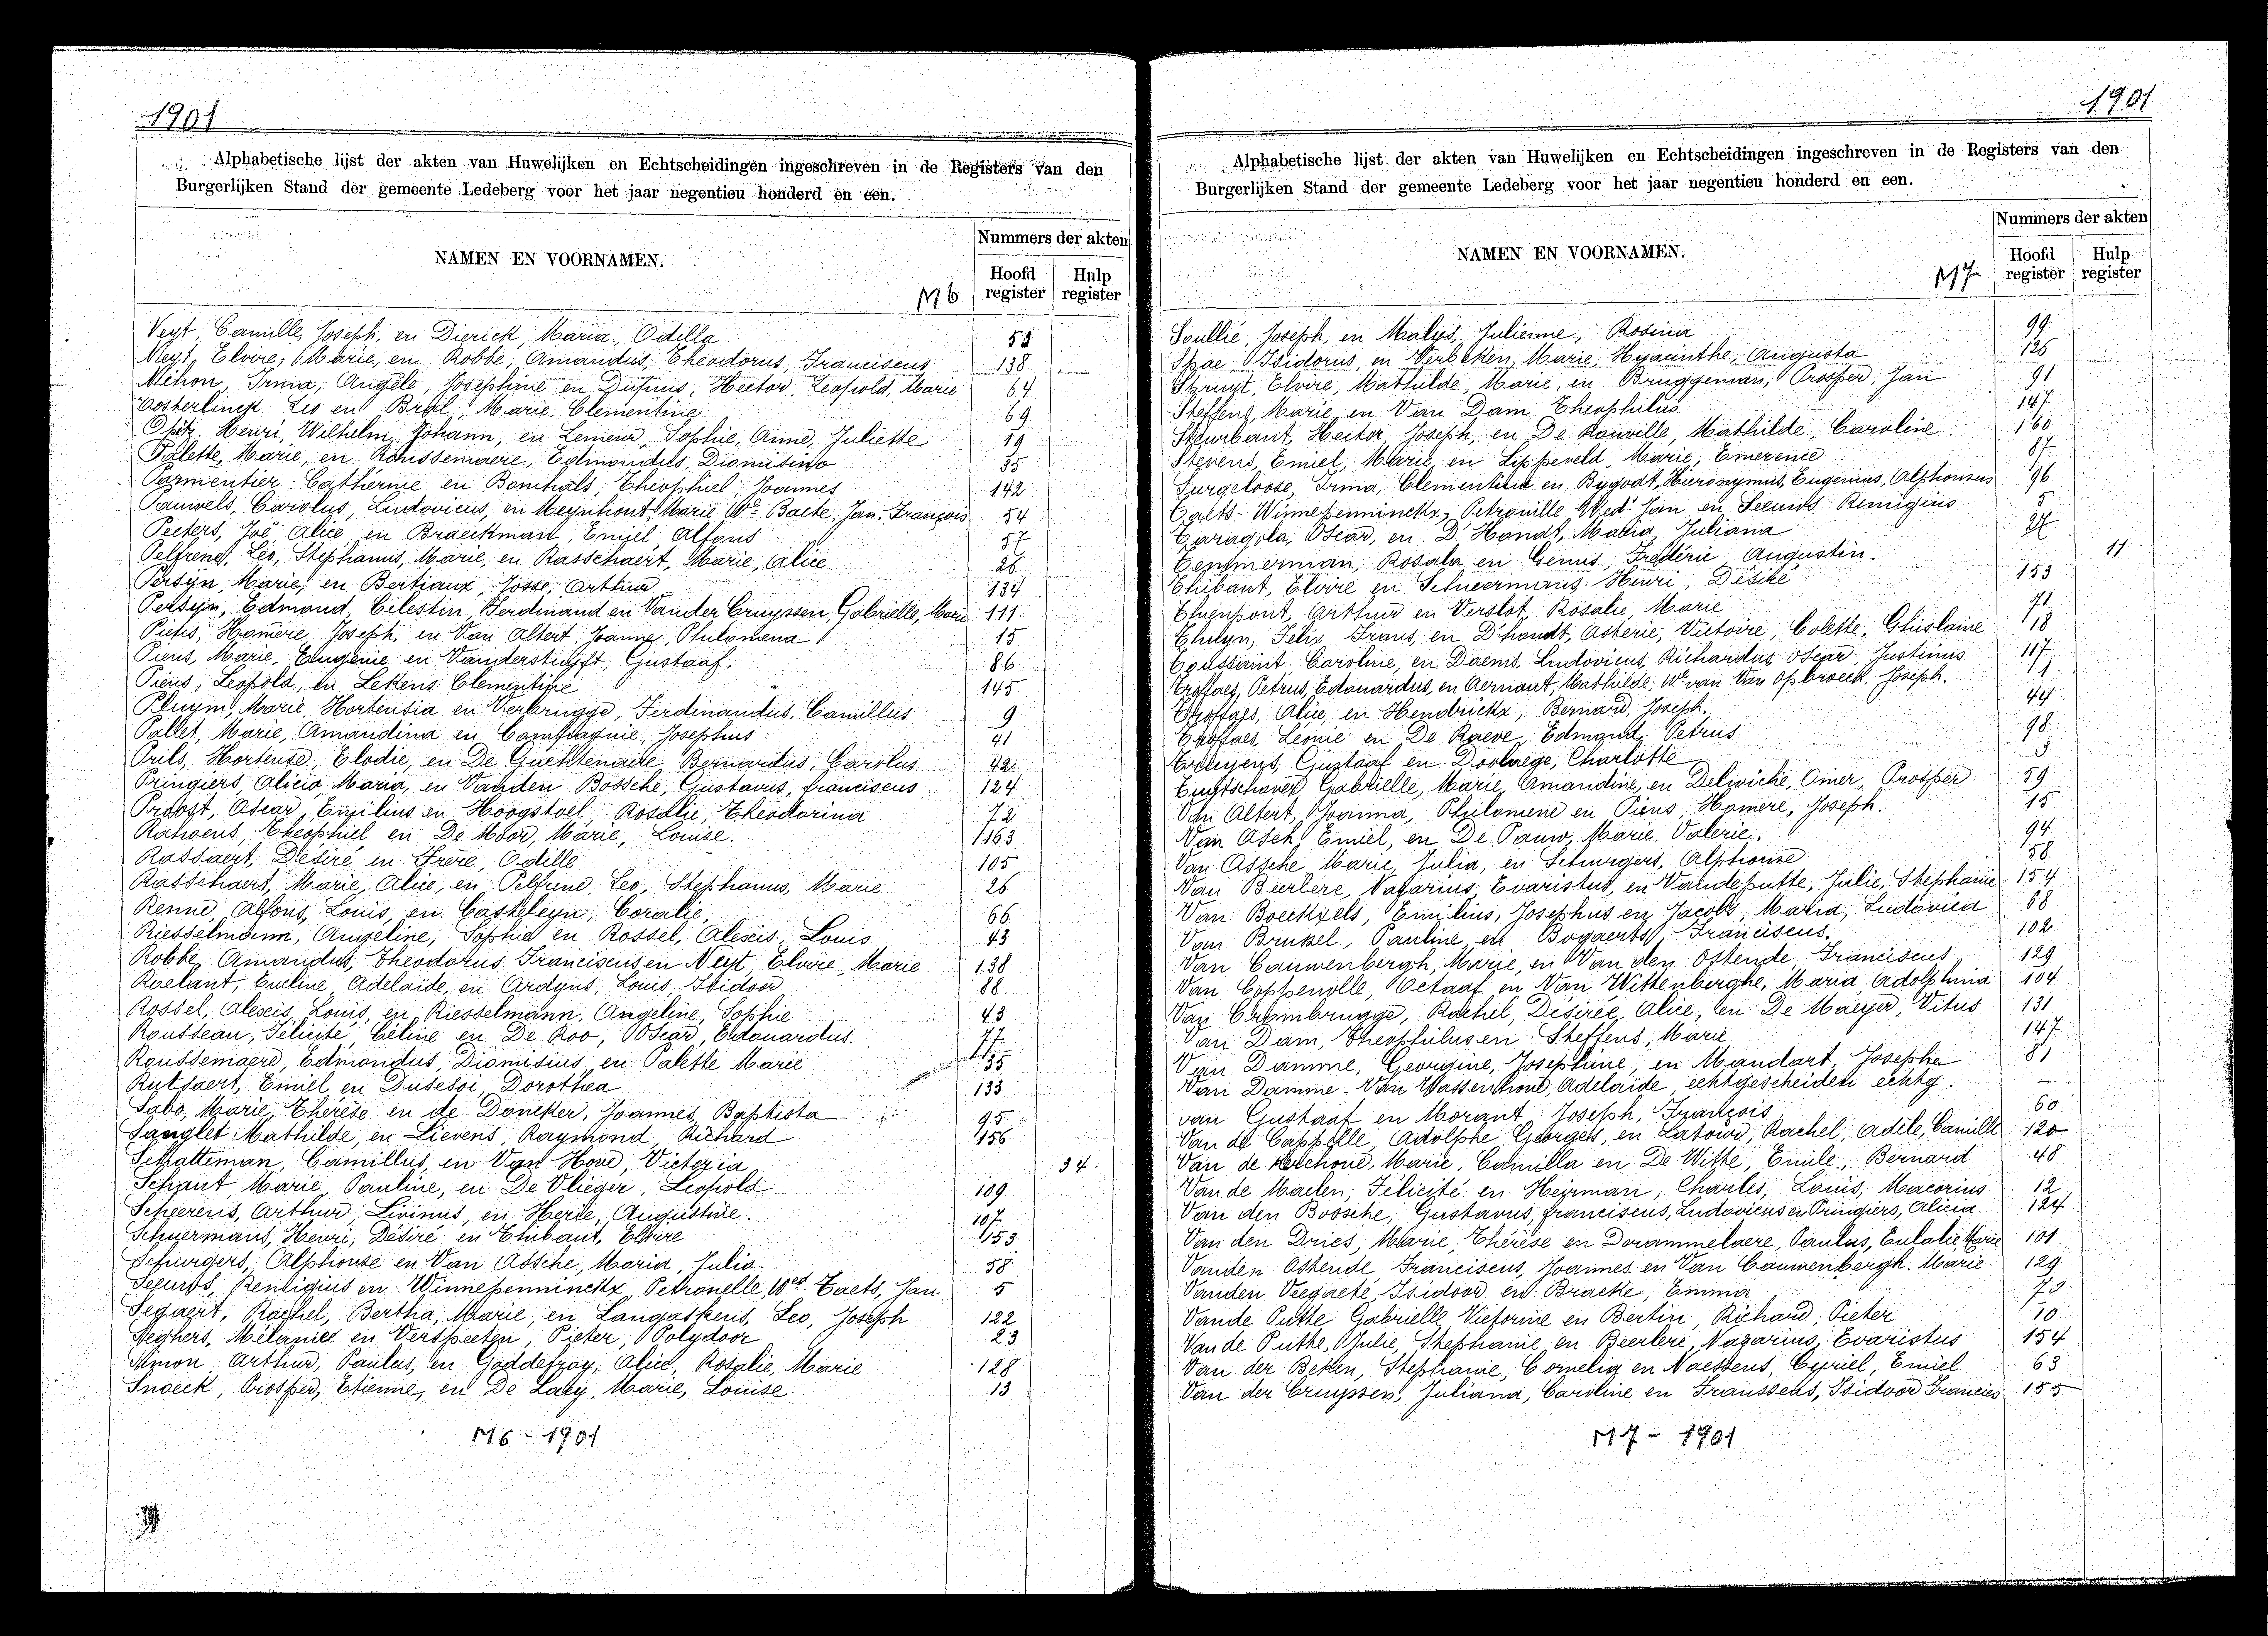 1901
Alphabetische lijst der akten van Huwelijken en Echtscheidingen ingeschreven in de Registers van den
Burgerlijken Stand der gemeente Ledeberg voor het jaar negentieu honderd en een.
NAMEN EN VOORNAMEN.
Nummers der akten
Hoofd register
Hulp register
M6
Neyt, Camille, Joseph, en Dierick, Maria, Odilla 53
Neyt, Elvire, Marie, en Robbe, Amandus, Theodorus, Franciscus 138
Nihon, Irma, Angèle, Josephine en Dupuis, Hector, Leopold, Marie 64
Oosterlinck Leo en Bral, Marie, Clementine 69
Opitz. Henri, Wilhelm, Johann, en Lemew, Sophie, Anne, Juliette 19
Palette, Marie, en Roussemaere, Edmondus, Dionisius 35
Parmentier Catherine en Bomhals, Theophiel, Joannes 142
Pauwels, Carolus, Ludovicus, en Meynhout, Marie We Baete, Jan, François 54
Peeters, Zoë, Alice en Braeckman, Emiel, Alfons 57
Pelfrene, Leo, Stephanus, Marie, en Rasschaert, Marie, Alice 26
Persijn, Marie, en Bertiaux, Josse, Arthur 134
Persijn, Edmond, Celestin, Ferdinand en Vander Cruyssen, Gabrielle, Marie 111
Piens, Homère, Joseph, en Van Altert, Joanna, Philomena 15
Piens, Marie, Eugenie en Vanderstuyft, Gustaaf. 86
Piens, Leopold, en Lekens Clementine 145
Pluym, Marie, Hortensia en Verbrugge, Ferdinandus, Camillus 9
Pollet, Marie, Amandina en Compagnie, Josephus 41
Prils, Hortense, Elodie, en De Guchtenaire, Bernardus, Carolus 42
Pringiers, Alicia, Maria, en Vanden Bossche, Gustavus, franciscus 124
Proost, Oscar, Emilius en Hoogstoel, Rosalie, Theodorina 72
Rahoens, Theophiel en De Moor, Marie, Louise. 163
Rassaert, Désiré en Frère, Odille 105
Rasschaert, Marie, Alice, en Pelfrene, Leo, Stephanus, Marie 26
Renne, Alfons, Louis, en Casteleyn, Coralie, 66
Riesselmann, Angeline, Sophie en Rossel, Alexis, Louis 43
Robbe, Amandus, Theodorus Franciscus en Neyt, Elvire, Marie 138
Roelant, Emeline, Adelaïde, en Ardyns, Louis, Isidoor 88
Rossel, Alexis, Louis, en Riesselmann, Angeline, Sophie 43
Rousseau, Félicité, Céline en De Roo, Oscar, Edouardus. 77
Roussemaere, Edmondus, Dionisius, en Palette Marie 35
Rutsaert, Emiel en Dusessoi, Dorothea 133
Sabo, Marie, Thérèse en de Doncker, Joannes, Baptista 95
Sanglet Mathilde, en Lievens, Raymond, Richard 156
Schatteman, Camillus, en Van Hove, Victoria 34
Schaut, Marie, Pauline, en De Vlieger, Leopold 109
Scheerens, Arthur, Livinus, en Herie, Augustine. 107
Schuermans, Henri, Désiré en Thibaut, Elvire 153
Schurgers, Alphonse en Van Assche, Maria, Julia. 58
Seeuws, Remigius en Winnepenninckx, Petronelle, Wed Taets, Jan 5
Segaert, Rachel, Bertha, Marie, en Langaskens, Leo, Joseph 122
Seghers, Mélanie en Verspeeten, Pieter, Polydoor 23
Simon, Arthur, Paulus, en Goddefroy, Alice, Rosalie, Marie 128
Snoeck, Prosper, Etienne, en De Laey, Marie, Louise 13
M6 - 1901
1901
Alphabetische lijst der akten van Huwelijken en Echtscheidingen ingeschreven in de Registers van den
Burgerlijken Stand der gemeente Ledeberg voor het jaar negentieu honderd en een.
NAMEN EN VOORNAMEN.
Nummers der akten
Hoofd register
Hulp register
M7
Soullié, Joseph, en Malys, Julienne, Rosina 99
Spae, Isidorus, en Verbeken, Marie, Hyacinthe, Augusta 126
Spruyt, Elvire, Mathilde, Marie, en Bruggeman, Prosper, Jan 91
Steffens, Marie en Van Dam Theophilus 147
Steurbaut, Hector, Joseph, en De Ronville, Mathilde, Caroline 160
Stevens, Emiel, Marie en Lippeveld, Marie, Emerence 87
Surgeloose, Irma, Clementina en Bygodt, Hieronymus, Eugenius, Alphonsus 96
Taets-Winnepenninckx, Petronille Wed. Jan en Seeuws Remigius 5
Taragola, Oscar, en D'Hondt, Maria, Juliana 27
Temmerman, Rosala en Genus, Frederic Augustin. 11
Thibaut, Elvire en Schuermans Henri, Désiré 153
Thienpont, Arthur en Verslot, Rosalie, Marie 71
Thulyn, Felix, Frans, en D'hondt, Asterie, Victoire, Colette, Ghislaine 18
Toussaint, Caroline, en Daems, Ludovicus, Richardus, Oscar, Justinus 117
Troffaes, Petrus, Edouardus, en Aernout, Mathilde, We van Van Opbroeck, Joseph. 1
Troffaes, Alice, en Hendrickx, Bernard, Joseph. 44
Troffaes, Léonie en De Raeve, Edmond, Petrus 98
Truyens, Gustaaf en Doolaege, Charlotte 3
Tuytschaver Gabrielle, Marie, Amandine, en Delwiche, Omer, Prosper 59
Van Altert, Joanna, Philomene en Piens, Homere, Joseph. 15
Van Asch, Emiel, en De Pauw, Marie, Valerie. 94
Van Assche Marie, Julia, en Schurgers, Alphonse 58
Van Beerlere, Nazarius, Evaristus, en Vandeputte, Julie, Stephanie 154
Van Boeckxels, Emilius, Josephus en Jacobs, Maria, Ludovica 68
Van Brussel, Pauline en Bogaerts, Franciscus. 102
Van Cauwenbergh, Marie, en Van den Ostende, Franciscus 129
Van Coppenolle, Octaaf en Van Wittenberghe, Maria, Adolphina 104
Van Crombrugge, Rachel, Désirée, Alice, en De Maeyer, Vitus 131
Van Dam, Theophilus en Steffens, Marie 147
Van Damme, Georgine, Josephine, en Mandart, Josephe 81
Van Damme-Van Wassenhove, Adelaïde, echtgescheiden echtg. -
van Gustaaf en Morant, Joseph, François 60
Van de Cappelle, Adolphe Georges, en Latour, Rachel, Adèle, Camille 120
Van de Kerchove, Marie, Camilla en De Witte, Emile, Bernard 48
Van de Maelen, Félicité en Heirman, Charles, Louis, Macorius 12
Van den Bossche, Gustavus, franciscus, Ludovicus en Pringiers, Alicia 124
Van den Dries, Marie, Thérèse en Dorammelaere, Paulus, Eulalie, Marie 101
Vanden Ostende, Franciscus, Joannes en Van Cauwenbergh, Marie 129
Vanden Veegaete, Isidoor en Bracke, Emma 73
Vande Putte Gabrielle, Victorine en Bertin, Richard, Pieter 10
Van de Putte, Julie, Stephanie, en Beerlere, Nazarius, Evaristus 154
Van der Beken, Stephanie, Cornelia en Naessens, Cyriel, Emiel 63
Van der Cruyssen, Juliana, Caroline en Franssens, Isidoor Francies 155
M7 - 1901